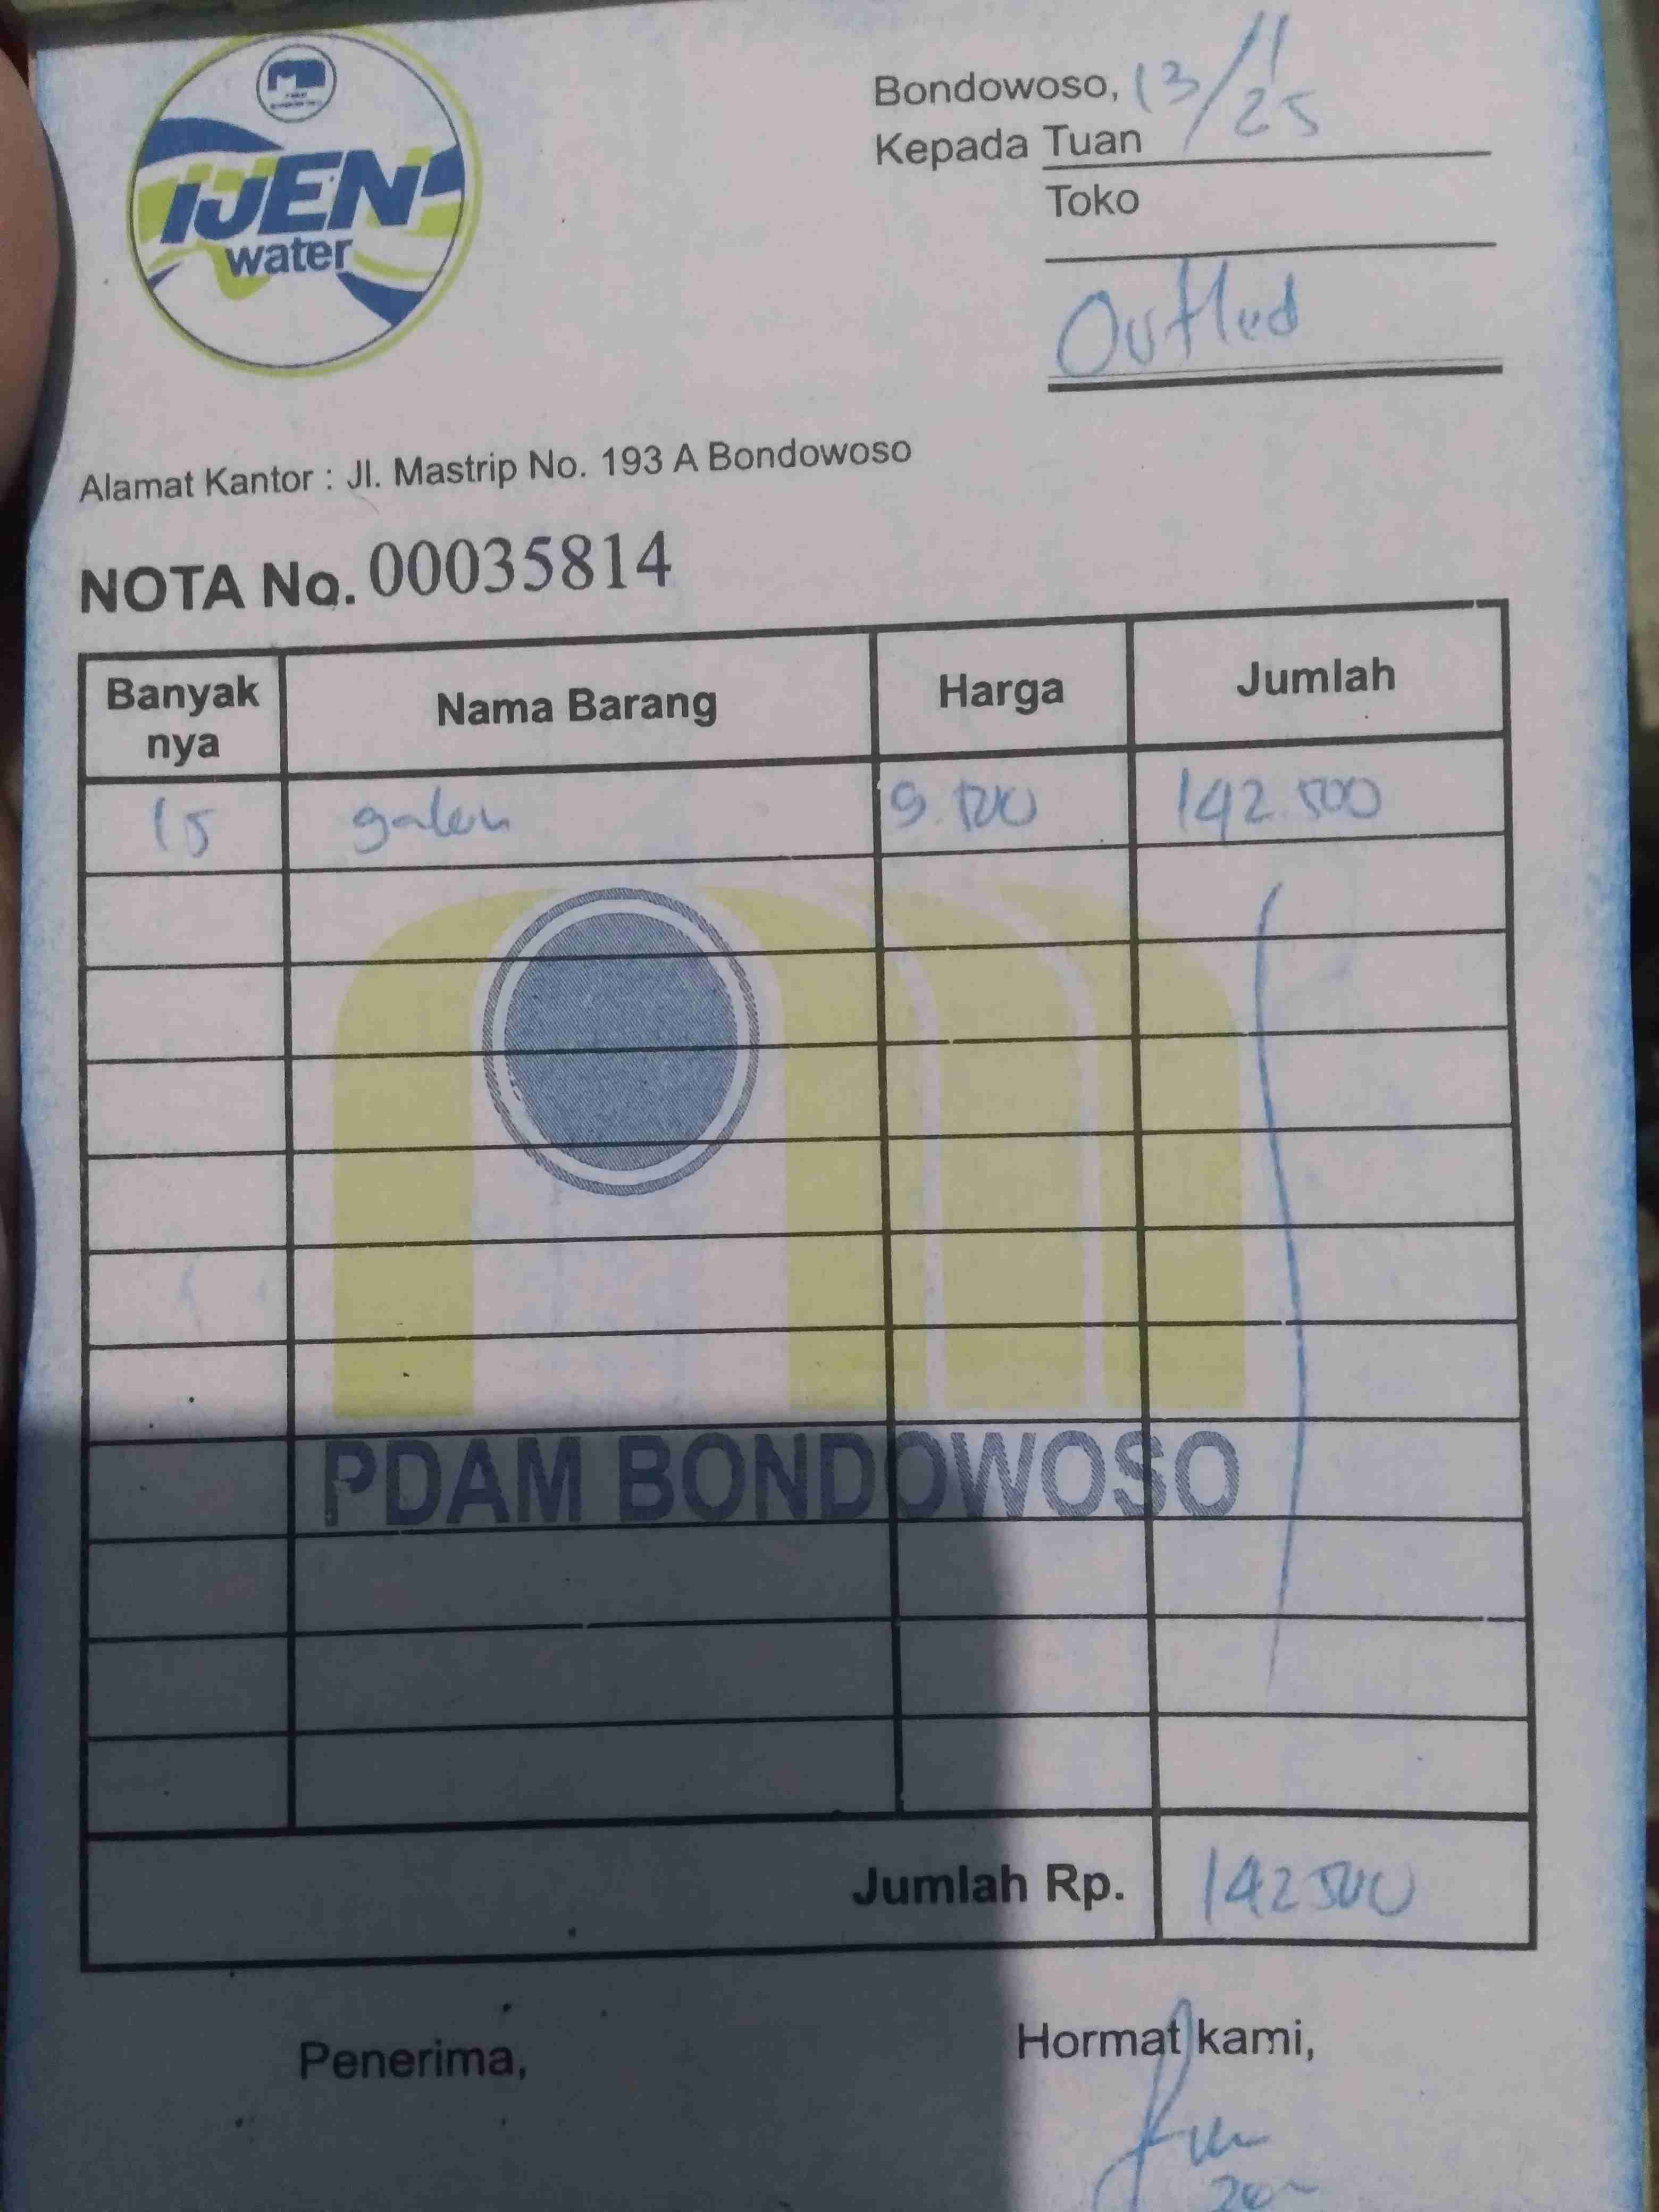 IJEN
water
Bondowoso, 13/11/25
Kepada Tuan
Toko
Outled
Alamat Kantor : Jl. Mastrip No. 193 A Bondowoso
NOTA No. 00035814
Banyak nya Nama Barang Harga Jumlah
15 galon 9.500 142.500
PDAM BONDOWOSO
Jumlah Rp. 142500
Penerima, Hormat kami,